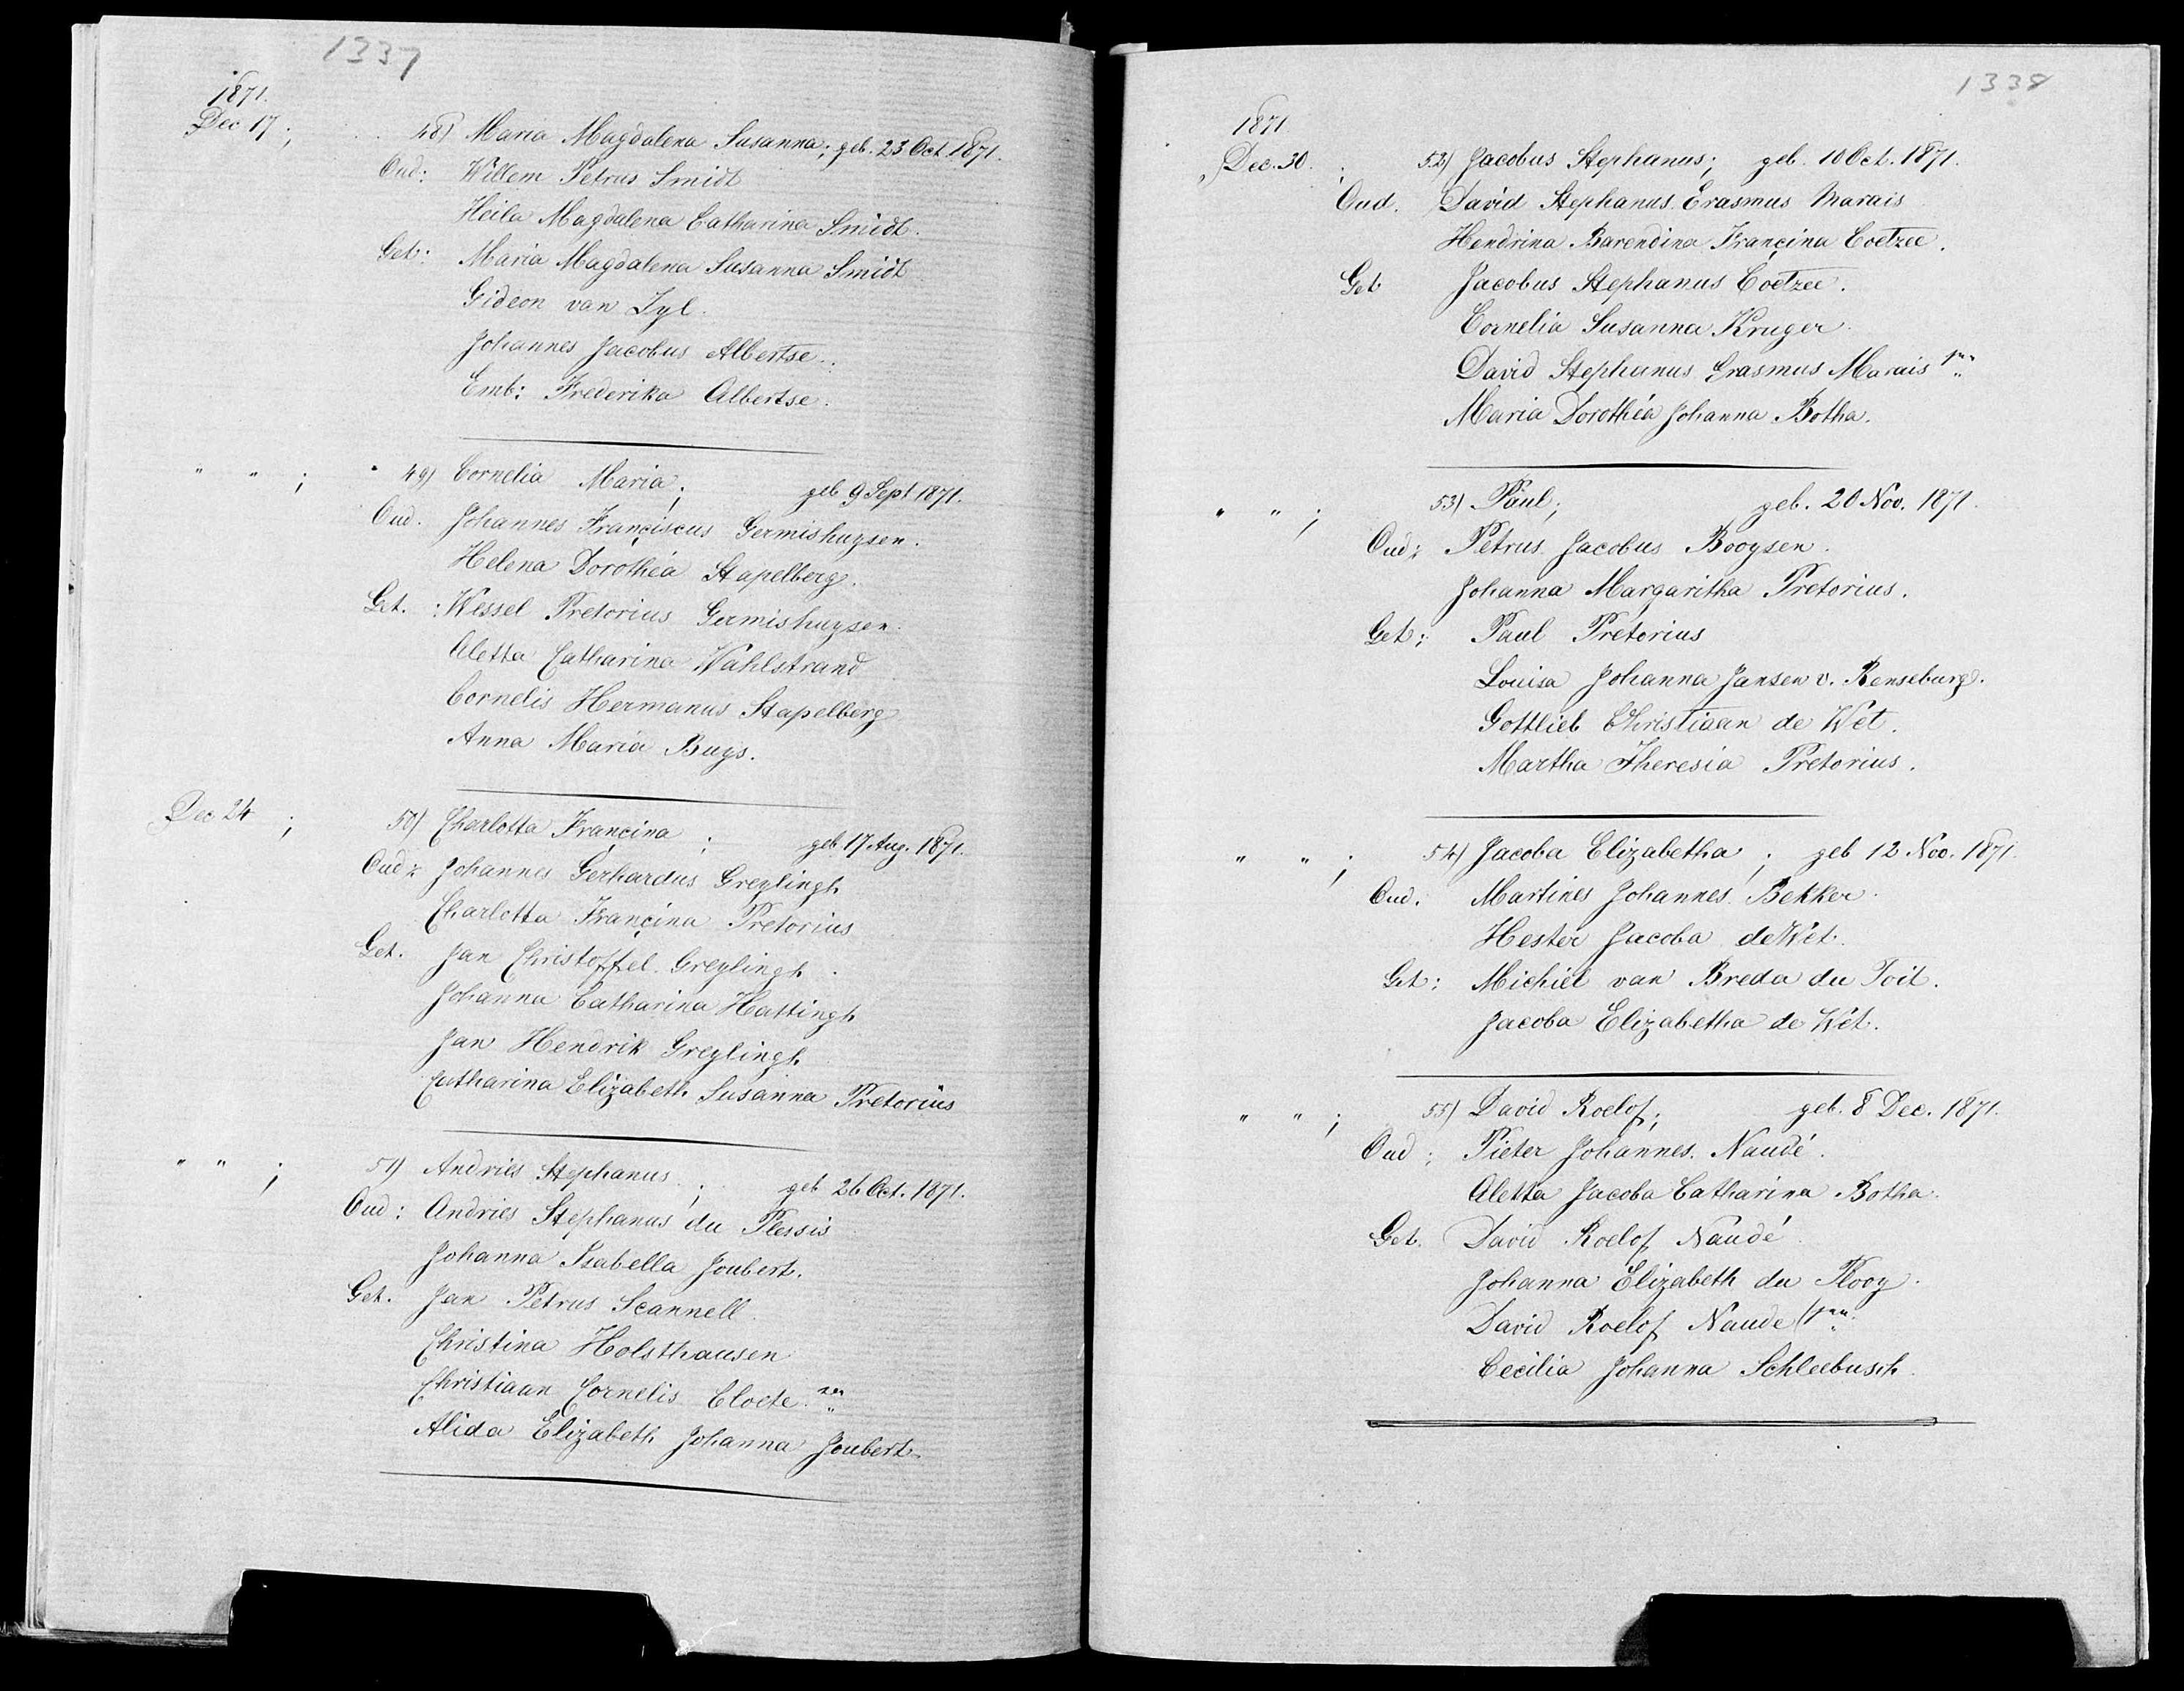 1337
1871.
Dec 17; 48) Maria Magdalena Susanna; geb. 23 Oct 1871.
Oud: Willem Petrus Smidt
Heila Magdalena Catharina Smidt.
Get: Maria Magdalena Susanna Smidt
Gideon van Zyl.
Johannes Jacobus Albertse.
Emb: Frederika Albertse.
" " ; 49) Cornelia Maria; geb 9 Sept 1871.
Oud. Johannes Françiscus Germishuysen.
Helena Dorothéa Stapelberg.
Get. : Wessel Pretorius Germishuysen.
Aletta Catharina Wahlstrand
Cornelis Hermanus Stapelberg
Anna Maria Buys.
Dec 24 ; 50) Charlotta Françina ; geb 17 Aug. 1871.
Oud: Johannes Gerhardus Greylingh
Charlotta Françina Pretorius
Get. Jan Christoffel Greylingh.
Johanna Catharina Hattingh
Jan Hendrik Greylingh
Catharina Elizabeth Susanna Pretorius
" " ; 51) Andries Stephanus ; geb 26 Oct. 1871.
Oud: Andries Stephanus du Plessis
Johanna Isabella Joubert.
Get. Jan Petrus Scannell.
Christina Holsthausen
Christiaan Cornelis Cloete
Alida Elizabeth Johanna Joubert
1338
1871
Dec. 30. ; 52) Jacobus Stephanus; geb. 10 Oct. 1871.
Oud. David Stephanus Erasmus Marais
Hendrina Barendina Françina Coetzee.
Get Jacobus Stephanus Coetzee.
Cornelia Susanna Kruger.
David Stephanus Erasmus Marais
Maria Dorothéa Johanna Botha.
" " ; 53) Paul; geb. 20 Nov. 1871.
Oud: Petrus Jacobus Booysen.
Johanna Margaritha Pretorius.
Get: Paul Pretorius
Louisa Johanna Jansen v. Renseburg.
Gottlieb Christiaan de Wet.
Martha Theresia Pretorius.
" " ; 54) Jacoba Elizabetha ; geb 12 Nov. 1871.
Oud: Martines Johannes Bekker.
Hester Jacoba de Wet.
Get: Michiel van Breda du Toit.
Jacoba Elizabetha de Wet.
" " ; 55) David Roelof; geb. 8 Dec. 1871.
Oud: Pieter Johannes Naudé.
Aletta Jacoba Catharina Botha.
Get. David Roelof Naudé.
Johanna Elizabeth du Plooy.
David Roelof Naude
Cecilia Johanna Schleebusch.